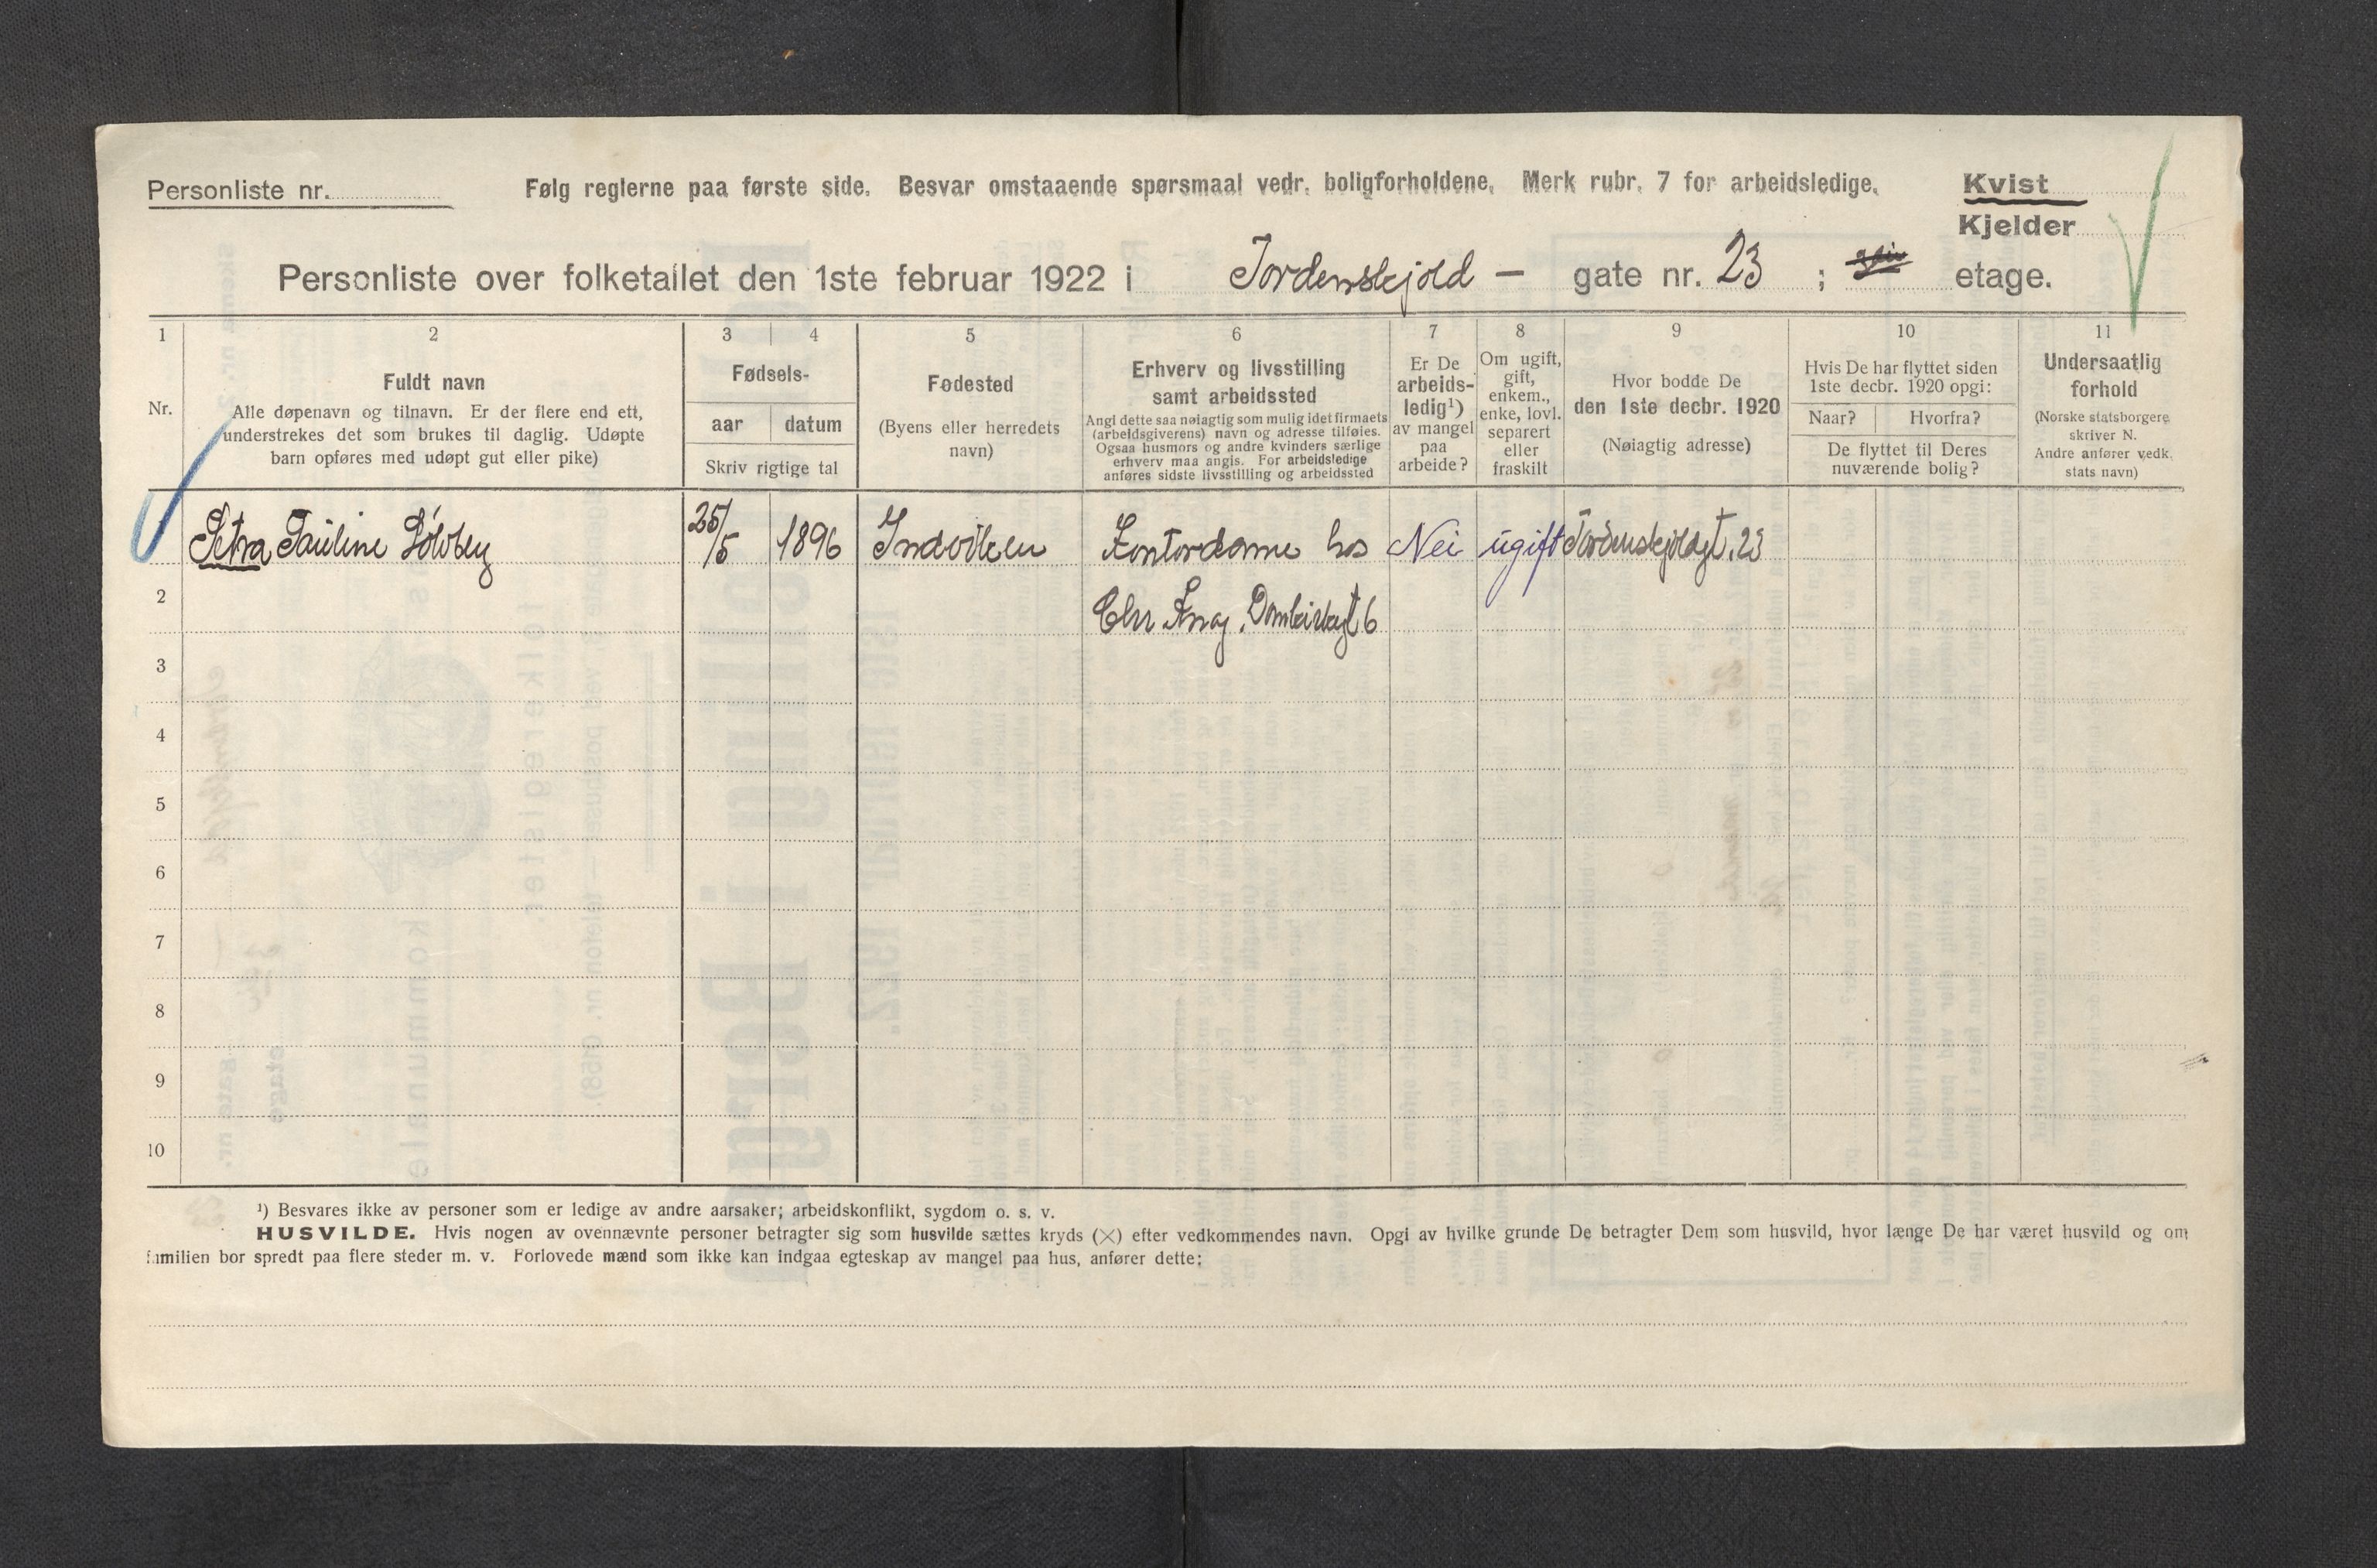 Personliste nr.
Følg reglerne paa første side. Besvar omstaaende spørsmaal vedr. boligforholdene. Merk rubr. 7 for arbeidsledige.
Kvist
Kjelder
Personliste over folketallet den 1ste februar 1922 i Tordenskjold — gate nr. 23 ; etage.
1 2 3 4 5 6 7 8 9 10 11
Nr.
Fuldt navn
Alle døpenavn og tilnavn. Er der flere end ett,
understrekes det som brukes til daglig. Udøpte
barn opføres med udøpt gut eller pike)
Fødsels-
aar datum
Skriv rigtige tal
Fødested
(Byens eller herredets
navn)
Erhverv og livsstilling
samt arbeidssted
Angi dette saa nøiagtig som mulig idet firmaets
(arbeidsgiverens) navn og adresse tilføies.
Ogsaa husmors og andre kvinders særlige
erhverv maa angis. For arbeidsledige
anføres sidste livsstilling og arbeidssted
Er De
arbeids-
ledig¹)
av mangel
paa
arbeide?
Om ugift,
gift,
enkem.,
enke, lovl.
separert
eller
fraskilt
Hvor bodde De
den 1ste decbr. 1920
(Nøiagtig adresse)
Hvis De har flyttet siden
1ste decbr. 1920 opgi:
Naar? Hvorfra?
De flyttet til Deres
nuværende bolig?
Undersaatlig
forhold
(Norske statsborgere
skriver N.
Andre anfører vedk.
stats navn)
Petra Pauline Sølvberg 25/5 1896 Indviken Kontordame hos Nei ugift Tordenskjoldsgt. 23
2 Chr Krag, Domkirkegt 6
3
4
5
6
7
8
9
10
¹) Besvares ikke av personer som er ledige av andre aarsaker; arbeidskonflikt, sygdom o. s. v.
HUSVILDE. Hvis nogen av ovennævnte personer betragter sig som husvilde sættes kryds (×) efter vedkommendes navn. Opgi av hvilke grunde De betragter Dem som husvild, hvor længe De har været husvild og om
familien bor spredt paa flere steder m. v. Forlovede mænd som ikke kan indgaa egteskap av mangel paa hus, anfører dette: